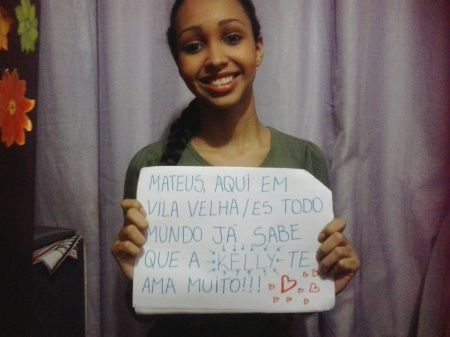 MATEUS, AQUI EM
VILA VELHA/ES TODO
MUNDO JÁ SABE
QUE A KELLY TE
AMA MUITO!!!